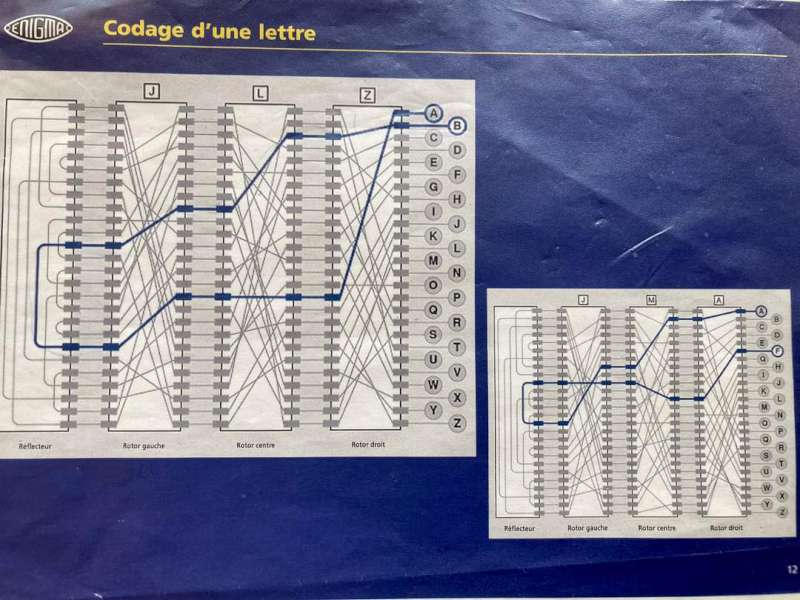 ENIGMA
Codage d'une lettre
J L Z
A
B
C
D
E
F
G
H
I
J
K
L
M
N
O
P
Q
R
S
T
U
V
W
X
Y
Z
Réflecteur Rotor gauche Rotor centre Rotor droit
J M A
A
B
C
D
E
F
G
H
I
J
K
L
M
N
O
P
Q
R
S
T
U
V
W
X
Y
Z
Réflecteur Rotor gauche Rotor centre Rotor droit
12